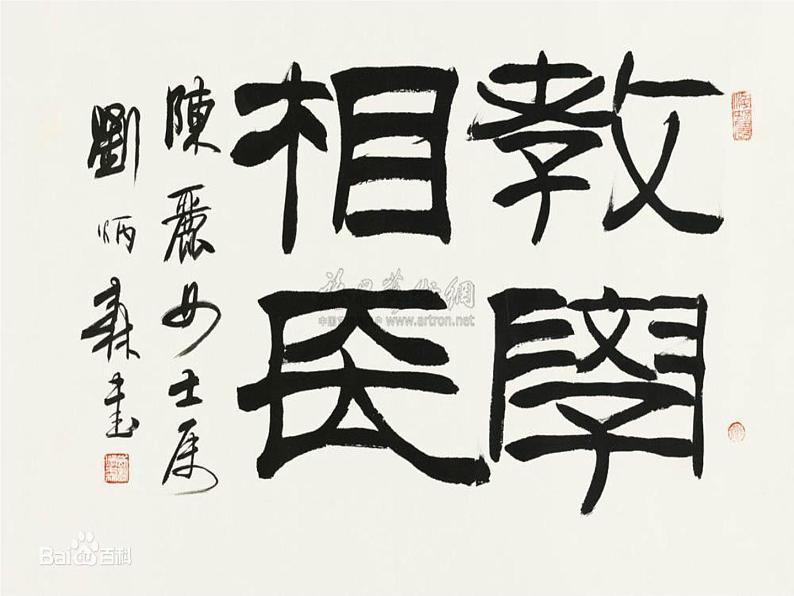 教學
相長
陳麗女士属
劉炳森書
www.artron.net
Bai百科